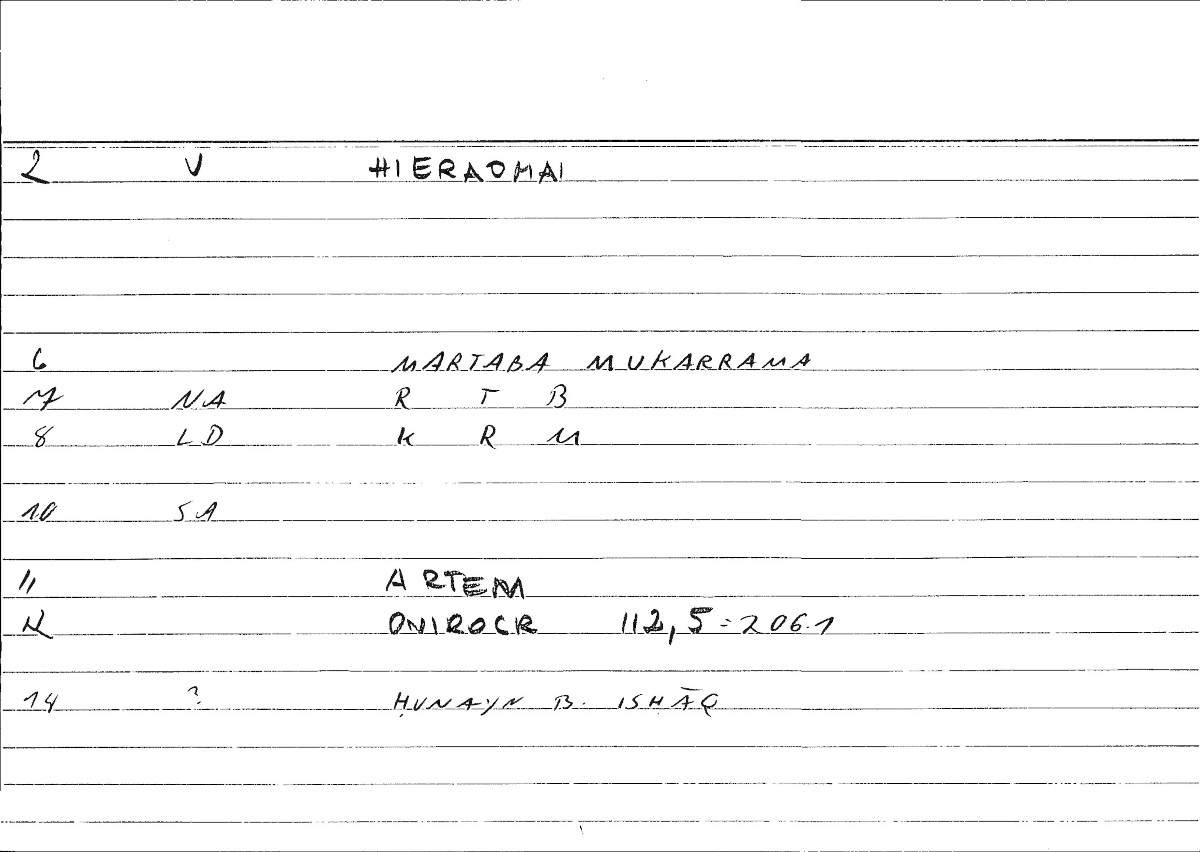 2 V HIERAOMAI
6 MARTABA MUKARRAMA
7 NA R T B
8 LD K R M
10 SA
11 ARTEM
12 ONIROCR 112,5 = 206.1
14 ? ḤUNAYN B. ISḤĀQ